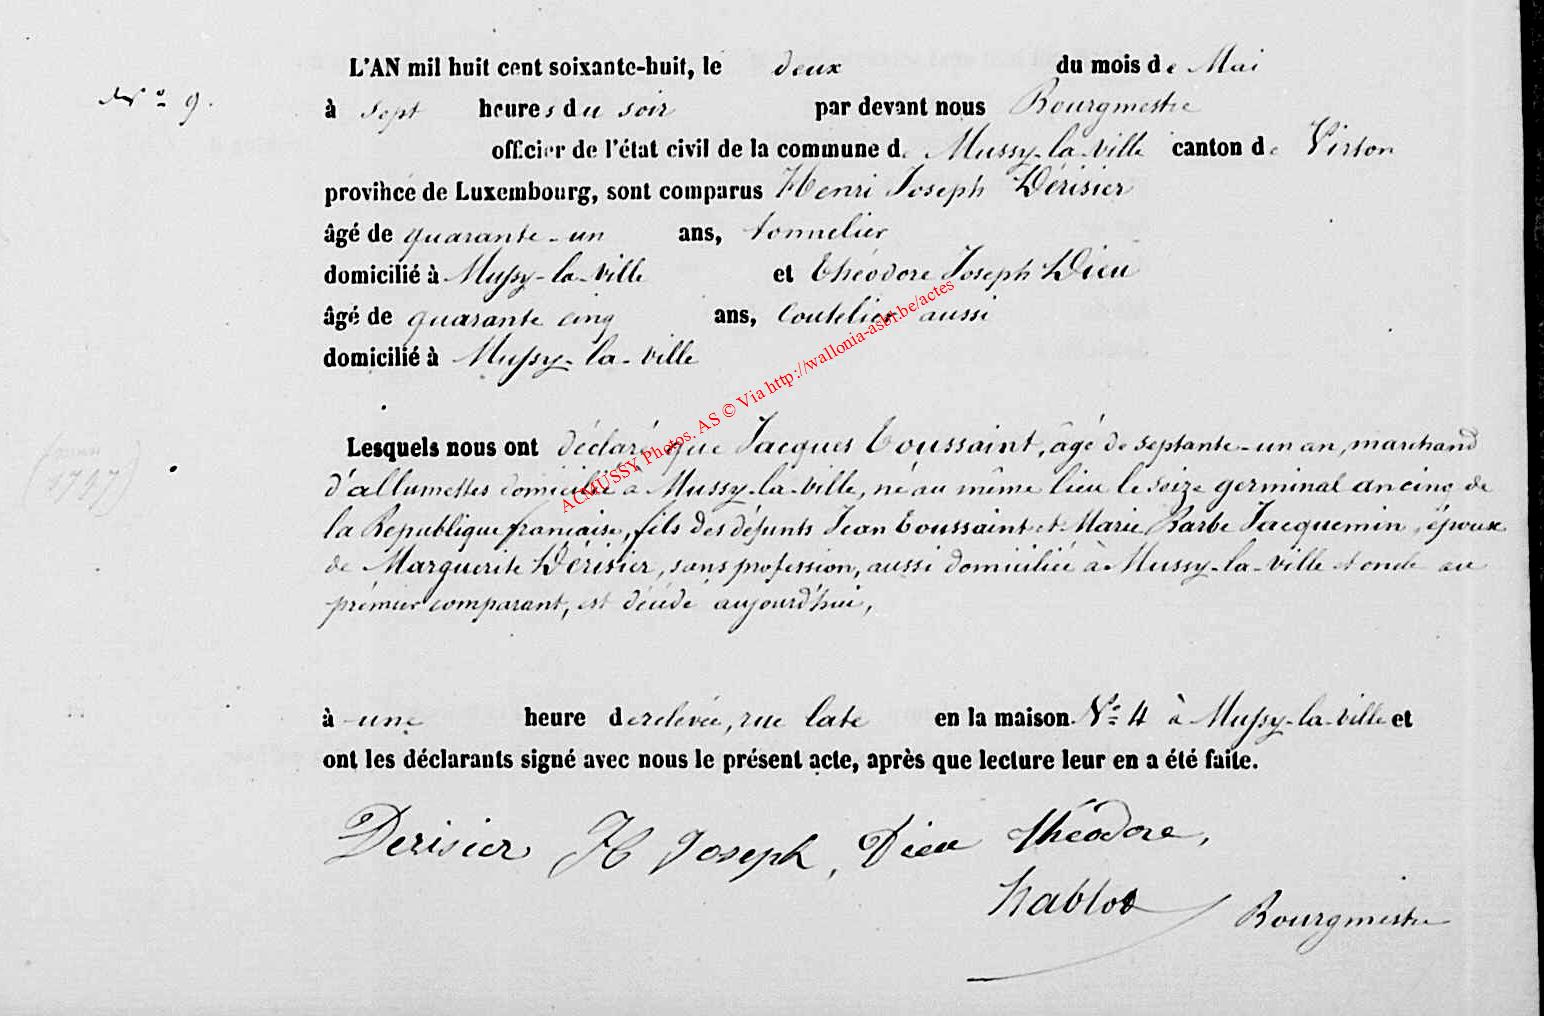 L'AN mil huit cent soixante-huit, le deux du mois de Mai
N° 9.
à sept heures du soir par devant nous Bourgmestre
officier de l'état civil de la commune de Mussy-la-ville canton de Virton
province de Luxembourg, sont comparus Henri Joseph Dérisier
âgé de quarante-un ans, tonnelier
domicilié à Mussy-la-ville et Théodore Joseph Dieu
âgé de quarante cinq ans, Coutelier aussi
domicilié à Mussy-la-ville
ACMUSSY Photos. AS © Via http://wallonia-asbl.be/actes
Lesquels nous ont déclaré que Jacques Toussaint, âgé de septante-un an, marchand
d'allumettes domicilié à Mussy-la-ville, né au même lieu le seize germinal an cinq de
(1797)
la République française, fils des défunts Jean Toussaint et Marie Barbe Jacquemin, époux
de Marguerite Dérisier, sans profession, aussi domiciliée à Mussy-la-ville et oncle au
prémier comparant, est décédé aujourd'hui,
à une heure de relevée, rue late en la maison N° 4 à Mussy-la-ville et
ont les déclarants signé avec nous le présent acte, après que lecture leur en a été faite.
Derisier H Joseph, Dieu théodore,
Bourgmestre